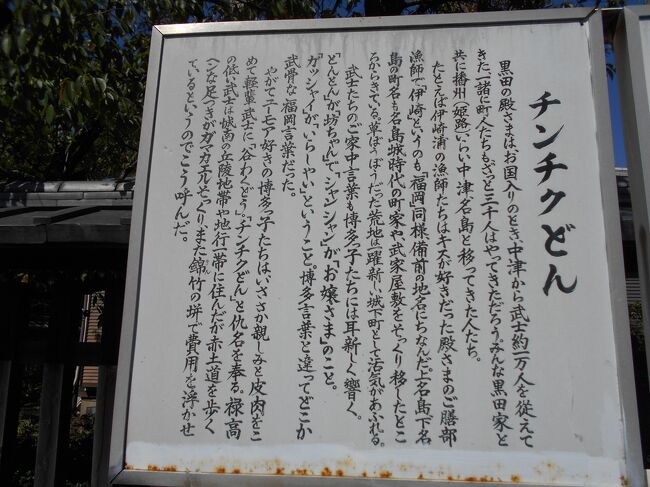 チンチクどん
黒田の殿さまはお国入りのとき、中津から武士約一万人を従えて
きた。一諸に町人たちもざっと三千人はやってきただろう。みんな黒田家と
共に播州(姫路)いらい中津、名島と移ってきた人たち。
たとえば伊崎浦の漁師たちはキスが好きだった殿さまのご膳部
漁師で、伊崎というのも「福岡」同様備前の地名にちなんだ。上名島、下名
島の町名も名島城時代の町家や武家屋敷をそっくり移したとこ
ろからきている。草ぼうぼうだった荒地は一躍新しい城下町として活気があふれる。
武士たちのご家中言葉も博多っ子たちには耳新しく響く。
「とんとん」が、「坊ちゃん」で、「ジャンジャン」が「お嬢さま」のこと。
「ガッシャイ」が、「いらしゃい」ということ、「博多言葉」と違ってどこか
武骨な福岡言葉だった。
やがてユーモア好きの博多っ子たちは、いささか親しみと皮肉をこ
めて軽輩武士に、「谷わくどう。」「チンチクどん」と仇名を奉る。禄高
の低い武士は城南の丘陵地帯や地行一帯に住んだが赤土道を歩く
ヘンな足つきがガマガエルそっくり、また錦竹の垪で費用を浮かせ
ているというのでこう呼んだ。